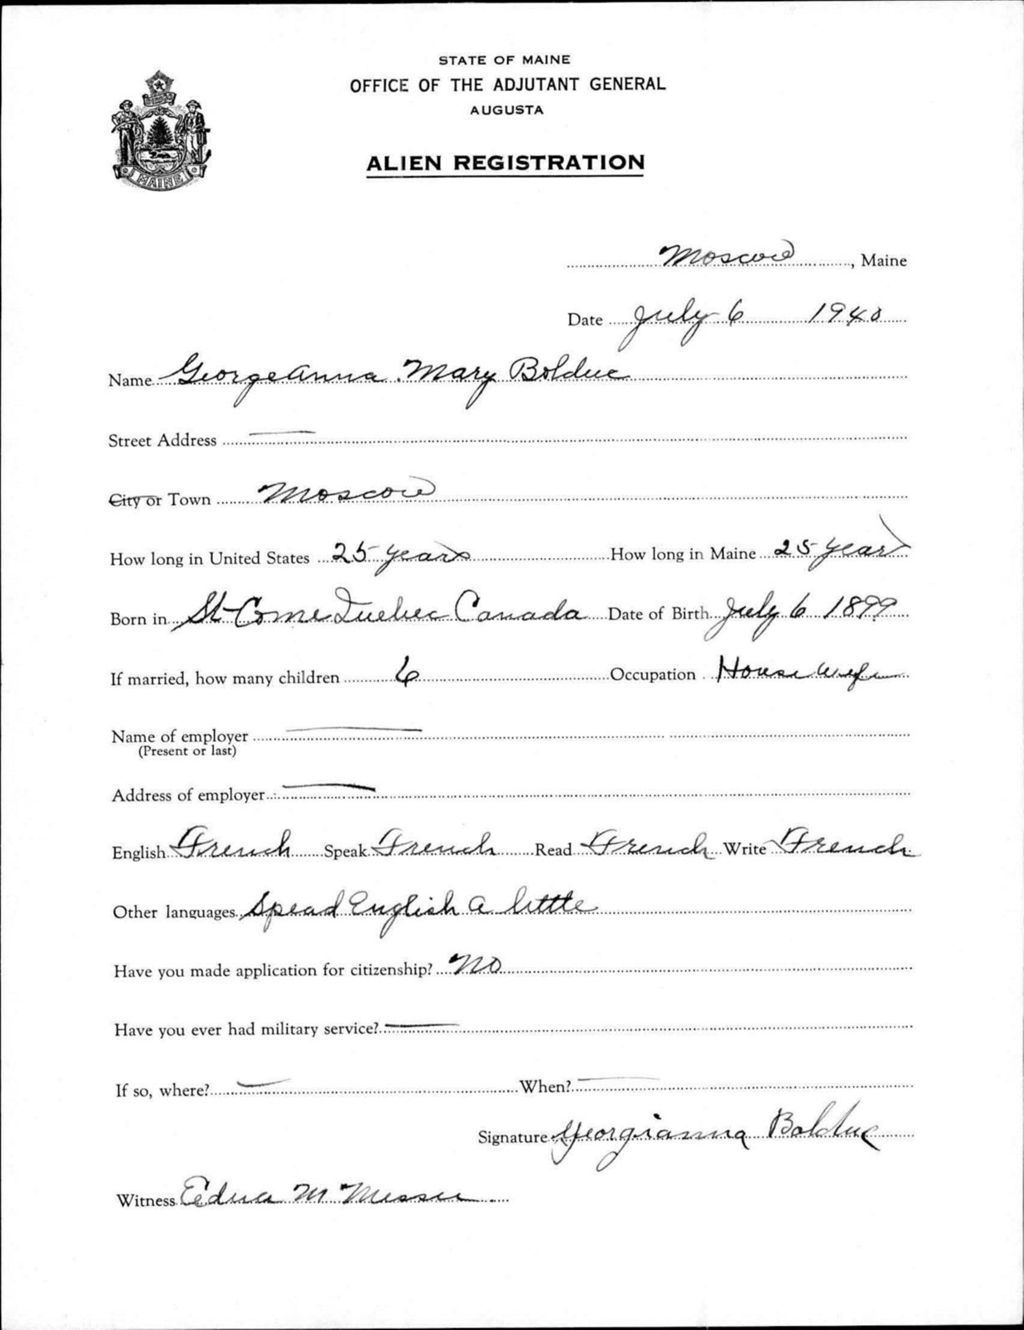 STATE OF MAINE
OFFICE OF THE ADJUTANT GENERAL
AUGUSTA
ALIEN REGISTRATION
MAINE
Moscow, Maine
Date July 6 1940
Name Georgeanna Mary Bolduc
Street Address —
City or Town Moscow
How long in United States 25 years How long in Maine 25 year
Born in St Come Quebec Canada Date of Birth July 6 1899
If married, how many children 6 Occupation House wife
Name of employer —
(Present or last)
Address of employer —
English French Speak French Read French Write French
Other languages Spead English a little
Have you made application for citizenship? No
Have you ever had military service? —
If so, where? — When? —
Signature Georgianna Bolduc
Witness Edna M Messer